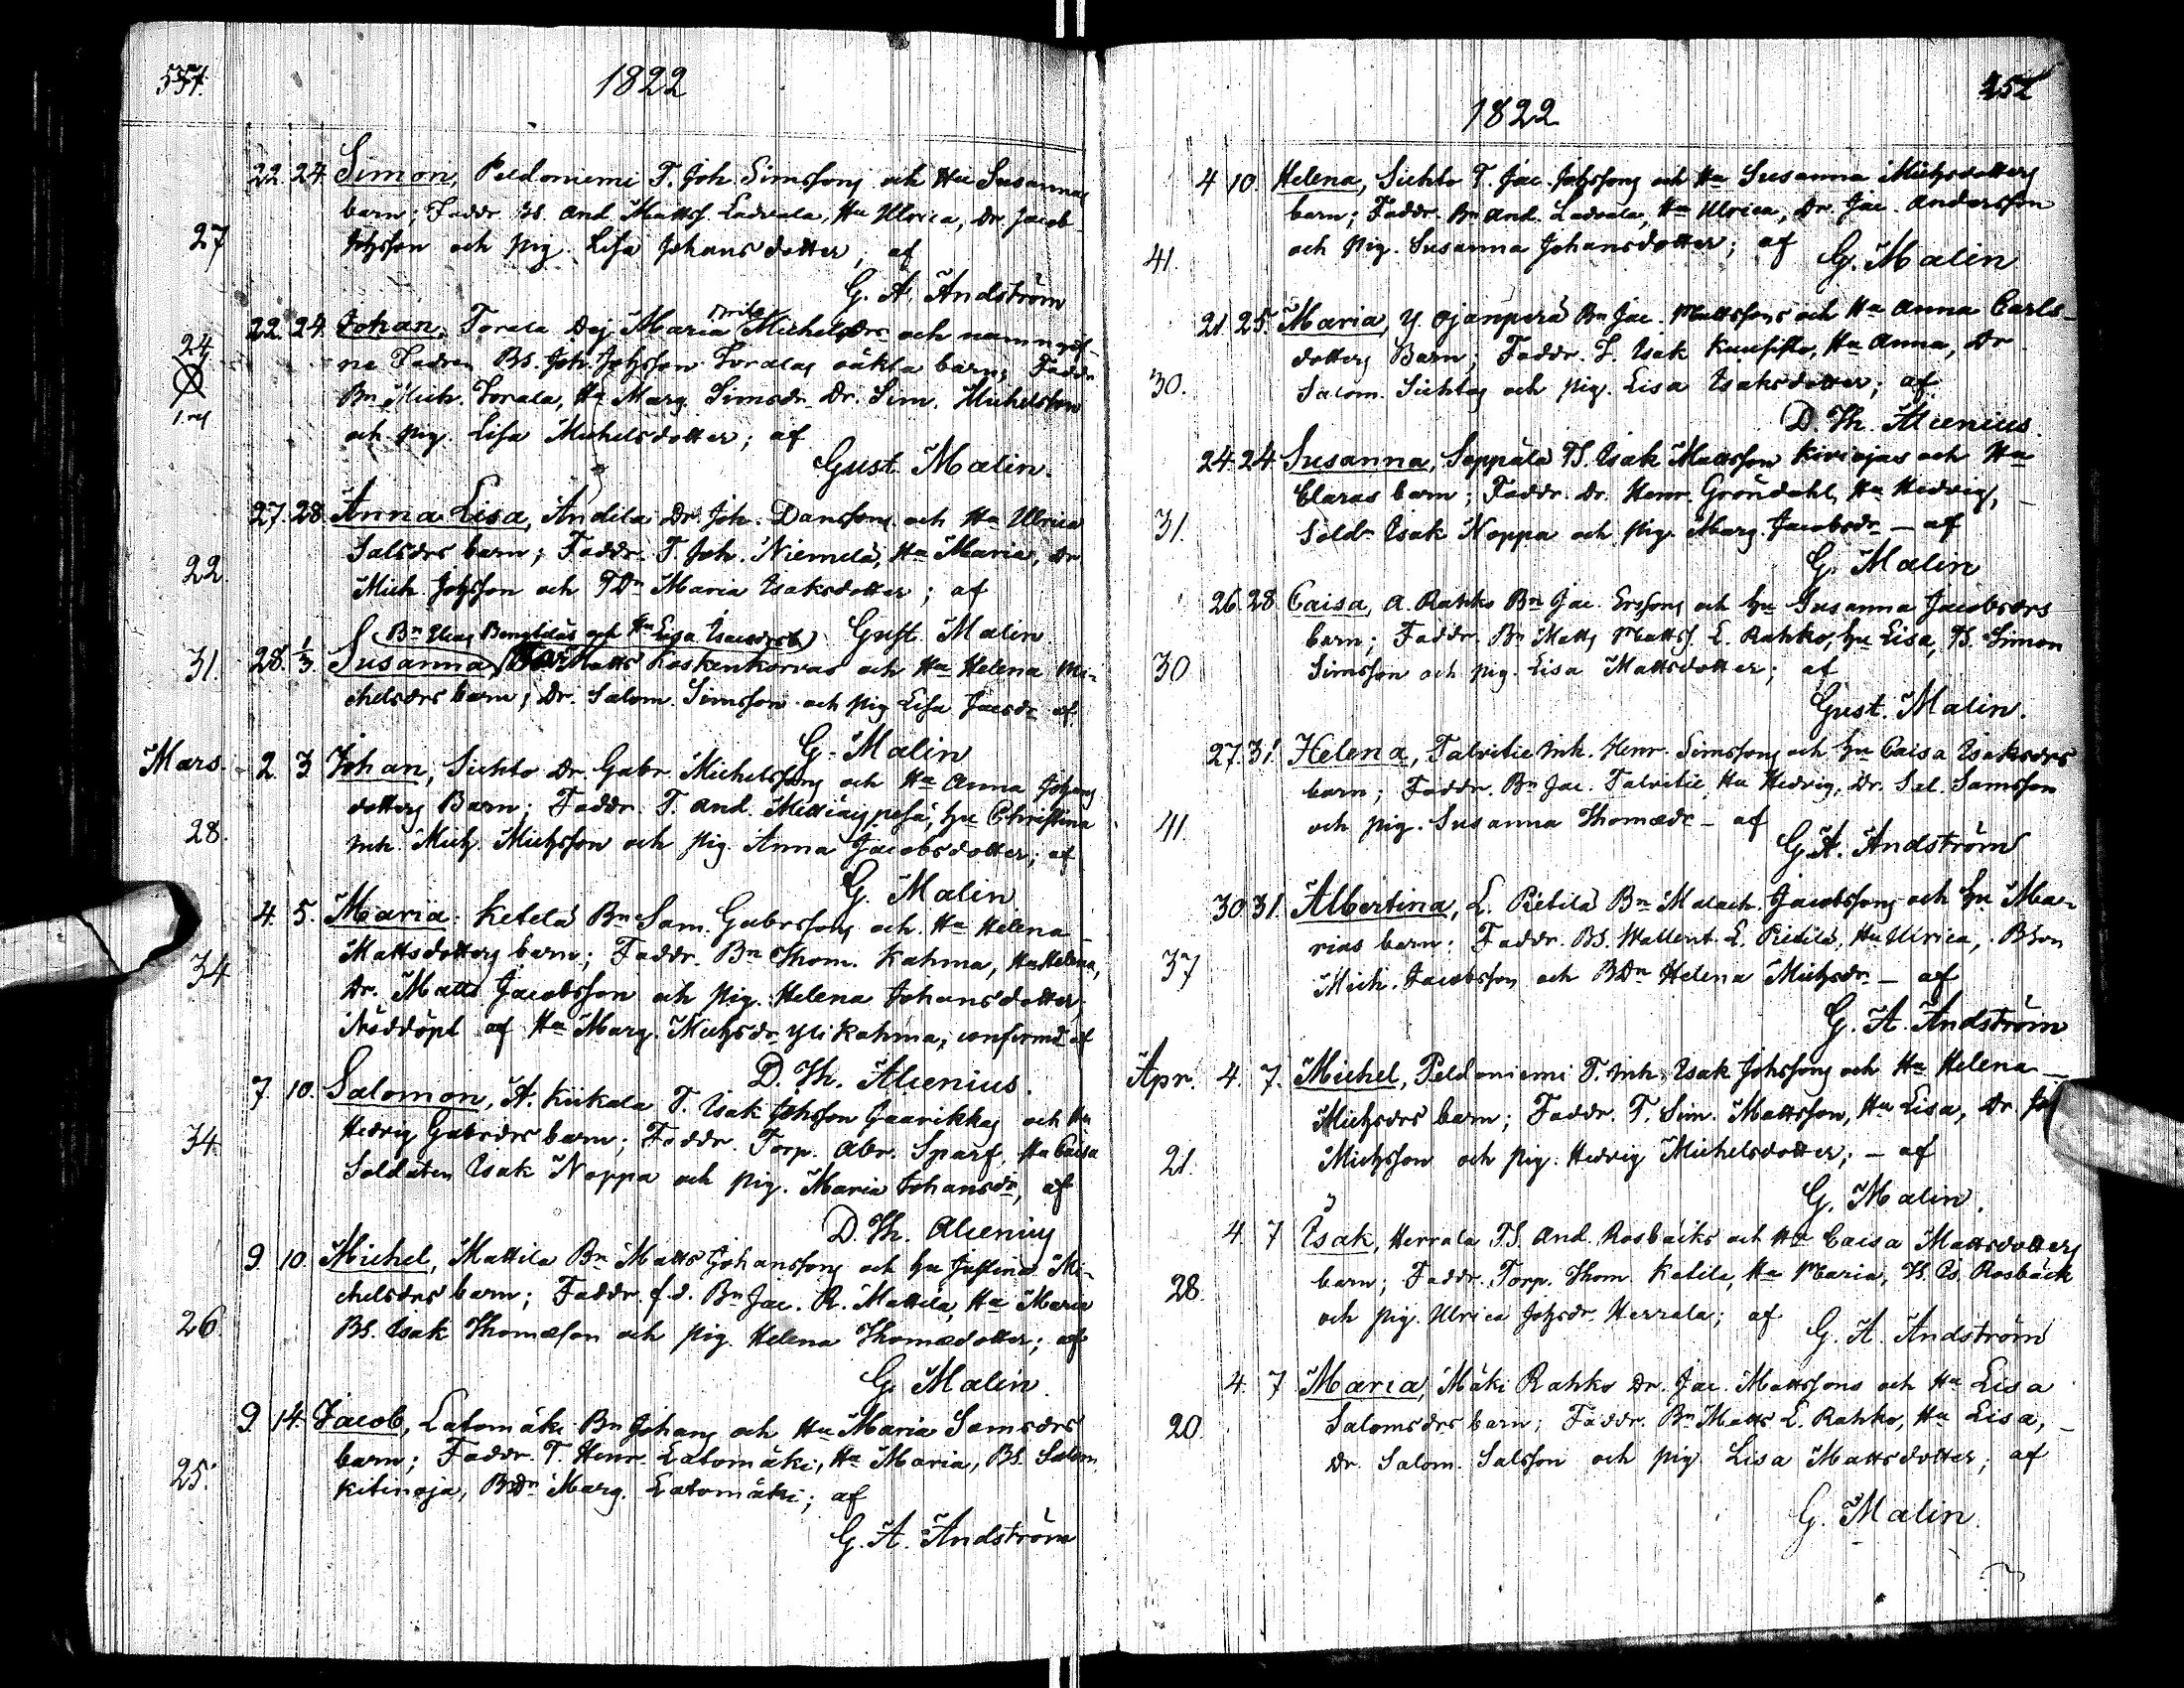 551.
1822
22. 24. Simon, Peldoniemi T. Joh. Simssons och Hu Susannas
barn; Faddr. Bs. And. Mattss. Ladvala, Hu Ulrica, Dr. Jacob
27 Johsson och pig. Lisa Johansdotter, af
G. A. Andström
22. 24. Johan, Torala Dej. Maria Michelsdr och namngif-
24
ne Fadren Bs. Joh. Johsson Toralas oäkta barn; Faddr
Bn Mich. Torala, Hu Marg. Simsdr Dr. Sim. Michelsson
och pig. Lisa Michelsdotter; af
Gust. Malin.
27. 28. Anna Lisa, Andila Dr. Joh. Danssons och Hu Ulrica
Salsdrs barn; Faddr. T. Joh. Niemelä, Hu Maria, Dr
22. Mich Johsson och TDr Maria Isaksdotter; af
Gust. Malin
(Bn Elias Bengtilas och Hu Lisa Isacsdrs)
31. 28. 1/3. Susanna, Matts Koskenkorvas och Hu Helena Mi-
chelsdrs barn; Dr. Salom. Simsson och pig Lisa Jacsdr af
G. Malin
Mars. 2. 3. Johan, Sichto Dr. Gabr. Michelssons och Hu Anna Johans
dotters Barn; Faddr. T. And. Mettiäispesä, hu Christina
28. Inh. Mich. Michsson och pig. Anna Jacobsdotter; af
G. Malin
4. 5. Maria. Ketelä Bn Sam. Gabrssons och Hu Helena
Mattsdotters barn; Faddr. Bn Thom. Kahma, Hu Helena,
34 Dr. Matts Jacobsson och pig. Helena Johansdotter
Nöddöpt af Hu Marg. Michsdr Yli Kahma; confirmd af
D. Th. Alcenius.
7. 10. Salomon, A. Kiikala T. Isak Johsson Jaarikkas och Hu
Hedvig Gabsdrs barn; Faddr. Torp. Abr. Sparf, Hu Caisa
34. Soldaten Isak Noppa och pig. Maria Johansdr, af
D. Th. Alcenius
9 10. Michel, Mattila Bn Matts Johanssons och hu Justina Mi-
chelsdrs barn; Faddr. f.d. Bn Jac. R. Mattila, Hu Maria
26. Bs. Isak Thomasson och pig. Helena Thomædotter; af
G. Malin.
9. 14. Jacob, Latomäki Bn Johans och Hu Maria Samsdrs
barn; Faddr. T. Henr. Latomäki, Hu Maria, Bs. Salom.
25. Kitinoja, BDr Marg. Latomäki; af
G. A. Andström
1822
4 10. Helena, Sichto T. Jac. Johssons och Hu Susanna Michsdotters
barn; Faddr. Bn And. Ladvala, Hu Ulrica, Dr. Jac. Andersson
41. och pig. Susanna Johansdotter; af G. Malin
21. 25. Maria, Y. Ojanperä Bn Jac. Mattssons och Hu Anna Carls-
dotters Barn; Faddr. Isak Kuusisto, Hu Anna, Dr
30. Salom. Sichtos och pig. Lisa Isaksdotter; af
D. Th. Alcenius.
24. 24. Susanna, Seppälä TS. Isak Mattsson Kiviojas och Hu
Claras barn; Faddr. Dr. Henr. Gröndahl, Hu Hedvig, –
31. Soldn Isak Noppa och pig. Marg. Jacobsdr – af
G. Malin
26. 28. Caisa, A. Rahko Bn Jac. Erssons och hu Susanna Jacobsdrs
barn; Faddr. Bn Matts Mattss. L. Rahko, hu Lisa, TS. Simon
30 Simsson och pig. Lisa Mattsdotter; af
Gust. Malin.
27. 31. Helena, Talvitie Inh. Henr. Simssons och hu Caisa Isaksdrs
barn; Faddr. Bn Jac. Talvitie Hu Hedvig, Dr. Sal. Samsson
41. och pig. Susanna Thomædr – af
G. A. Andström
30. 31. Albertina, L. Pietilä Bn Malach. Jacobssons och hu Ma-
rias barn: Faddr. BS. Wallent. L. Pietilä, Hu Ulrica, BSon
37 Mich. Jacobsson och BDr Helena Michsdr – af
G. A. Andström
Apr. 4. 7. Michel, Peldoniemi T. Inh. Isak Johssons och Hu Helena –
Michsdrs barn; Faddr. T. Sim. Mattsson, Hu Lisa, Dr.
21. Michsson och pig. Hedvig Michelsdotter; – af
G. Malin.
4. 7 Isak, Herrala TS. And. Rosbäcks och Hu Caisa Mattsdotters
barn; Faddr. Torp. Thom. Ketila, Hu Maria, Is. Rosbäck
28. och pig. Ulrica Johsdr. Herrala; af G. A. Andström
4. 7 Maria, Mäki Rahko Dr. Jac. Mattssons och Hu Lisa
Salomsdrs barn; Faddr. Bn Matts L. Rahko, Hu Lisa, –
20. Dr. Salom. Salsson och pig Lisa Mattsdotter, af
G. Malin.